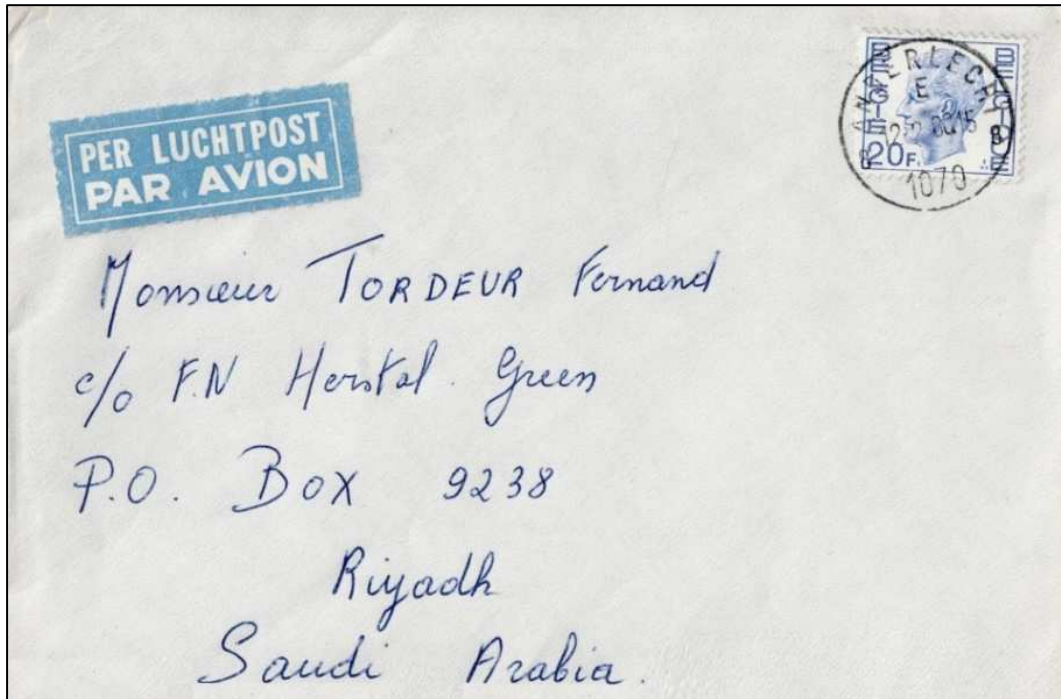 PER LUCHTPOST
PAR AVION
BELGIE
BELGIQUE
20F.
ANDERLECHT
E
1070
Monsieur TORDEUR Fernand
c/o F.N Herstal. Green
P.O. BOX 9238
Riyadh
Saudi Arabia.